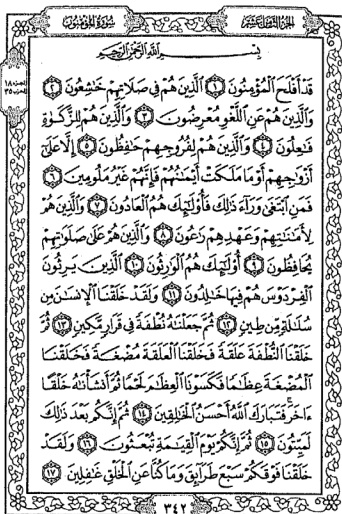 الجزء الثامن عشر
سورة المؤمنون
بِسْمِ اللَّهِ الرَّحْمَٰنِ الرَّحِيمِ
قَدْ أَفْلَحَ الْمُؤْمِنُونَ ۝١ الَّذِينَ هُمْ فِي صَلَاتِهِمْ خَاشِعُونَ ۝٢
وَالَّذِينَ هُمْ عَنِ اللَّغْوِ مُعْرِضُونَ ۝٣ وَالَّذِينَ هُمْ لِلزَّكَوٰةِ
فَاعِلُونَ ۝٤ وَالَّذِينَ هُمْ لِفُرُوجِهِمْ حَافِظُونَ ۝٥ إِلَّا عَلَىٰ
أَزْوَاجِهِمْ أَوْ مَا مَلَكَتْ أَيْمَانُهُمْ فَإِنَّهُمْ غَيْرُ مَلُومِينَ ۝٦
فَمَنِ ابْتَغَىٰ وَرَاءَ ذَٰلِكَ فَأُولَٰئِكَ هُمُ الْعَادُونَ ۝٧ وَالَّذِينَ هُمْ
لِأَمَانَاتِهِمْ وَعَهْدِهِمْ رَاعُونَ ۝٨ وَالَّذِينَ هُمْ عَلَىٰ صَلَوَاتِهِمْ
يُحَافِظُونَ ۝٩ أُولَٰئِكَ هُمُ الْوَارِثُونَ ۝١٠ الَّذِينَ يَرِثُونَ
الْفِرْدَوْسَ هُمْ فِيهَا خَالِدُونَ ۝١١ وَلَقَدْ خَلَقْنَا الْإِنسَانَ مِن
سُلَالَةٍ مِّن طِينٍ ۝١٢ ثُمَّ جَعَلْنَاهُ نُطْفَةً فِي قَرَارٍ مَّكِينٍ ۝١٣ ثُمَّ
خَلَقْنَا النُّطْفَةَ عَلَقَةً فَخَلَقْنَا الْعَلَقَةَ مُضْغَةً فَخَلَقْنَا
الْمُضْغَةَ عِظَامًا فَكَسَوْنَا الْعِظَامَ لَحْمًا ثُمَّ أَنشَأْنَاهُ خَلْقًا
ءَاخَرَ فَتَبَارَكَ اللَّهُ أَحْسَنُ الْخَالِقِينَ ۝١٤ ثُمَّ إِنَّكُم بَعْدَ ذَٰلِكَ
لَمَيِّتُونَ ۝١٥ ثُمَّ إِنَّكُمْ يَوْمَ الْقِيَامَةِ تُبْعَثُونَ ۝١٦ وَلَقَدْ
خَلَقْنَا فَوْقَكُمْ سَبْعَ طَرَائِقَ وَمَا كُنَّا عَنِ الْخَلْقِ غَافِلِينَ ۝١٧
٣٤٢